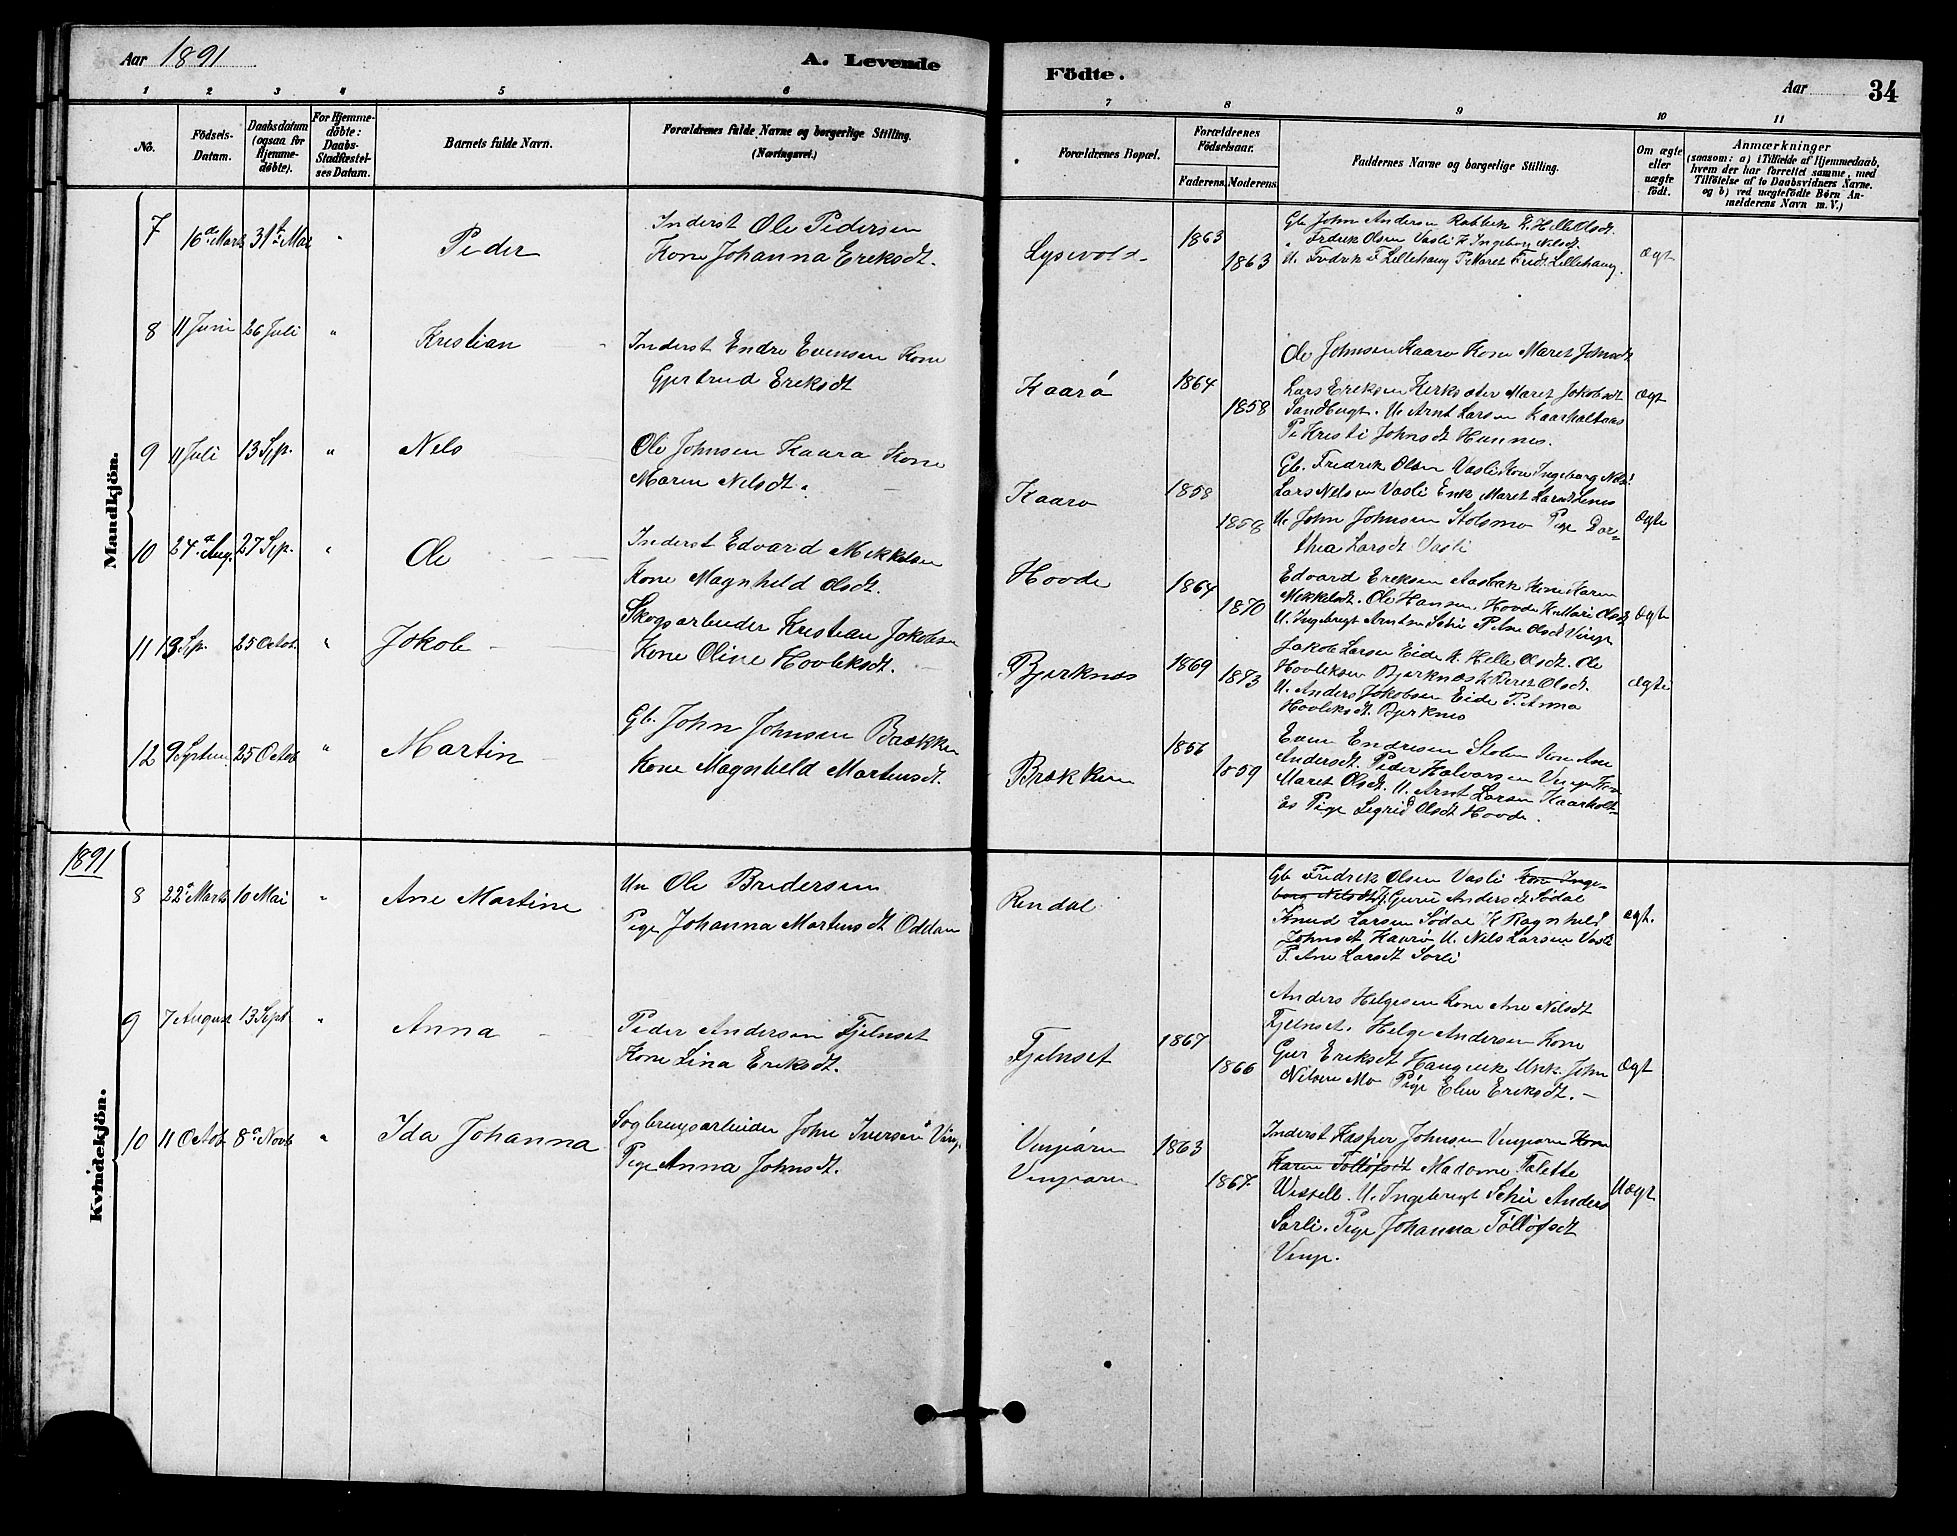 Aar 1891
A. Levende
Födte.
Aar
34
1 2 3 4 5 6 7 8 9 10 11
No.
Födsels-
Datum.
Daabsdatum
(ogsaa for
Hjemme-
döbte).
For Hjemme-
döbte:
Daabs-
Stadfæstel-
ses Datum.
Barnets fulde Navn.
Forældrenes fulde Navne og borgerlige Stilling.
(Næringsvei.)
Forældrenes Bopæl.
Forældrenes
Födselsaar.
Faderens. Moderens.
Faddernes Navne og borgerlige Stilling.
Om ægte
eller
uægte
födt.
Anmærkninger
(saasom: a) i Tilfælde af Hjemmedaab,
hvem der har forrettet samme, med
Tilföielse af to Daabsvidners Navne.
og b) ved uægtefödte Börn An-
melderens Navn m. V.)
Mandkjön.
7 16de Marts 31te Mai " Peder
Inderst Ole Pedersen
Kone Johanna Eriksdt.
Lysevold
1863
1863
Gb. John Andersen Rabbek K. Helle Olsdt.
" Fredrik Olsen Vasli K. Ingeborg Nilsdt.
U. Fredrik F Lillehaug P. Maret Fredr. Lillehaug.
Ægt
8 11 Juni 26 Juli " Kristian
Inderst Endre Evensen Kone
Gjertrud Eriksdt
Kaarø
1864
1858
Ole Johnsen Kaarø Kone Maret Johnsdt
Lars Eriksen Kirksæter Maret Jokobsdt
Sandbugt. U. Arnt Larsen Kaarholtaas
Pi Kristi Johnsdt Hannes.
Ægt
9 11 Juli 13 Sep. " Nels
Ole Johnsen Kaarø Kone
Maren Nelsdt.
Kaarø
1858
1858
Gb. Fredrik Olsen Vasli Kone Ingeborg Nelsd.
Lars Nelsen Vasli Enk. Maret Larsdt Lenes
U. John Johnsen Stolsmo Pige Dor-
thea Larsdt Vasli
Ægte
10 24de Aug. 27 Sep. " Ole
Inderst Edvard Mikkelsen
Kone Magnhild Olsdt.
Hovde
1864
1870
Edvard Eriksen Aasbæk Kone Karen
Mikkelsdt. Ole Hansen Hovde K. Mari Olsdt
U. Ingebregt Arntsen Seter P. Ane Olsdt Vinge
Ægte
11 19 Sp. 25 Octob. " Jokob
Skogsarbeider Kristian Jokobsen
Kone Oline Hovleksdt.
Bjerknæs
1869
1873
Jakob Larsen Eide K. Helle Olsdt. Ole
Hovleksen Bjerknæs K. Beret Olsdt.
U. Anders Jokobsen Eide P. Anna
Hovleksdt. Bjerknes
Ægte
12 9 Septem. 25 Octob. " Martin
Gb. John Johnsen Brækken
Kone Magnhild Martensdt.
Brækken
1856
1859
Even Endresen Stolen Kone Ane
Andersdt. Peder Halvorsen Vinge Kone
Maret Olsdt. U. Arnt Larsen Kaarholt-
ås Pige Segrid Olsdt Hovde.
1891
Kvindekjön.
8 22de Marts 10 Mai " Ane Martine
Un Ole Brudersen
Pige Johanna Martensdt Oddan
Rindal
Gb Fredrik Olsen Vasli Kone Inge-
borg Nelsdt P. Guru Andersdt Sødal
Knud Larsen Sødal K Ragnhild
Johnsdt Kaarø U. Nils Larsen Vasli
P. Ane Larsdt Sorli
ægt.
9 7 August 13 Sept " Anna
Peder Andersen Fjelnset
Kone Lina Eriksdt.
Fjelnset
1867
1866
Anders Helgesen Kone Ane Nilsdt
Fjelnset. Helge Andersen Kone
Guri Eriksdt Haugvik Unk. John
Nilsen Mo Pige Elen Eriksdt. -
Ægt
10 11 Octob. 8de Novb " Ida Johanna
Sagbrugsarbeider John Iversen Ving.
Pige Anna Johnsdt.
Vinjeøren
Vinjeøren
1863
1867.
Inderst Kasper Johnsen Vinjeøren Kone
Karen Tolløfsdt Madame Talette
Wessell. U. Ingebregt Seter Anders
Sorli. Pige Johanna Tolløfsdt
Vinje.
Uægt